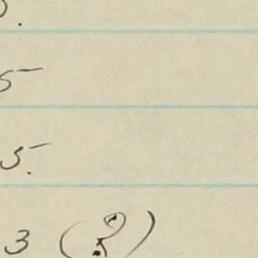 5
5.
3 (?)